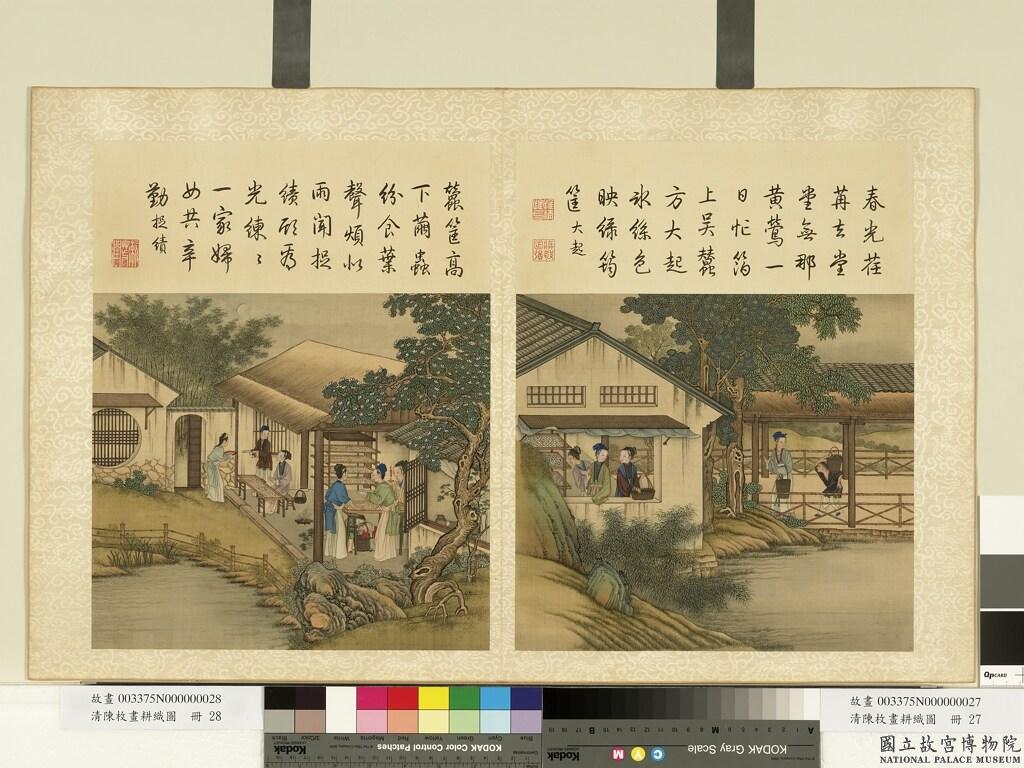 春光荏
苒去堂
堂無那
黄鶯一
日忙箔
上吳蠶
方大起
冰絲色
映綠筠
筐 大起
蠶筐高
下繭蟲
紛食葉
聲煩似
雨聞捉
績願為
光練〻
一家婦
女共辛
勤 捉績
故畫 003375N000000028
清陳枚畫耕織圖 冊 28
故畫 003375N000000027
清陳枚畫耕織圖 冊 27
KODAK Color Control Patches
Blue
Cyan
Green
Yellow
Red
Magenta
White
3/Color
Black
Kodak
KODAK Gray Scale
Kodak
C
Y
M
A
M
B
QPCARD
國立故宮博物院
NATIONAL PALACE MUSEUM